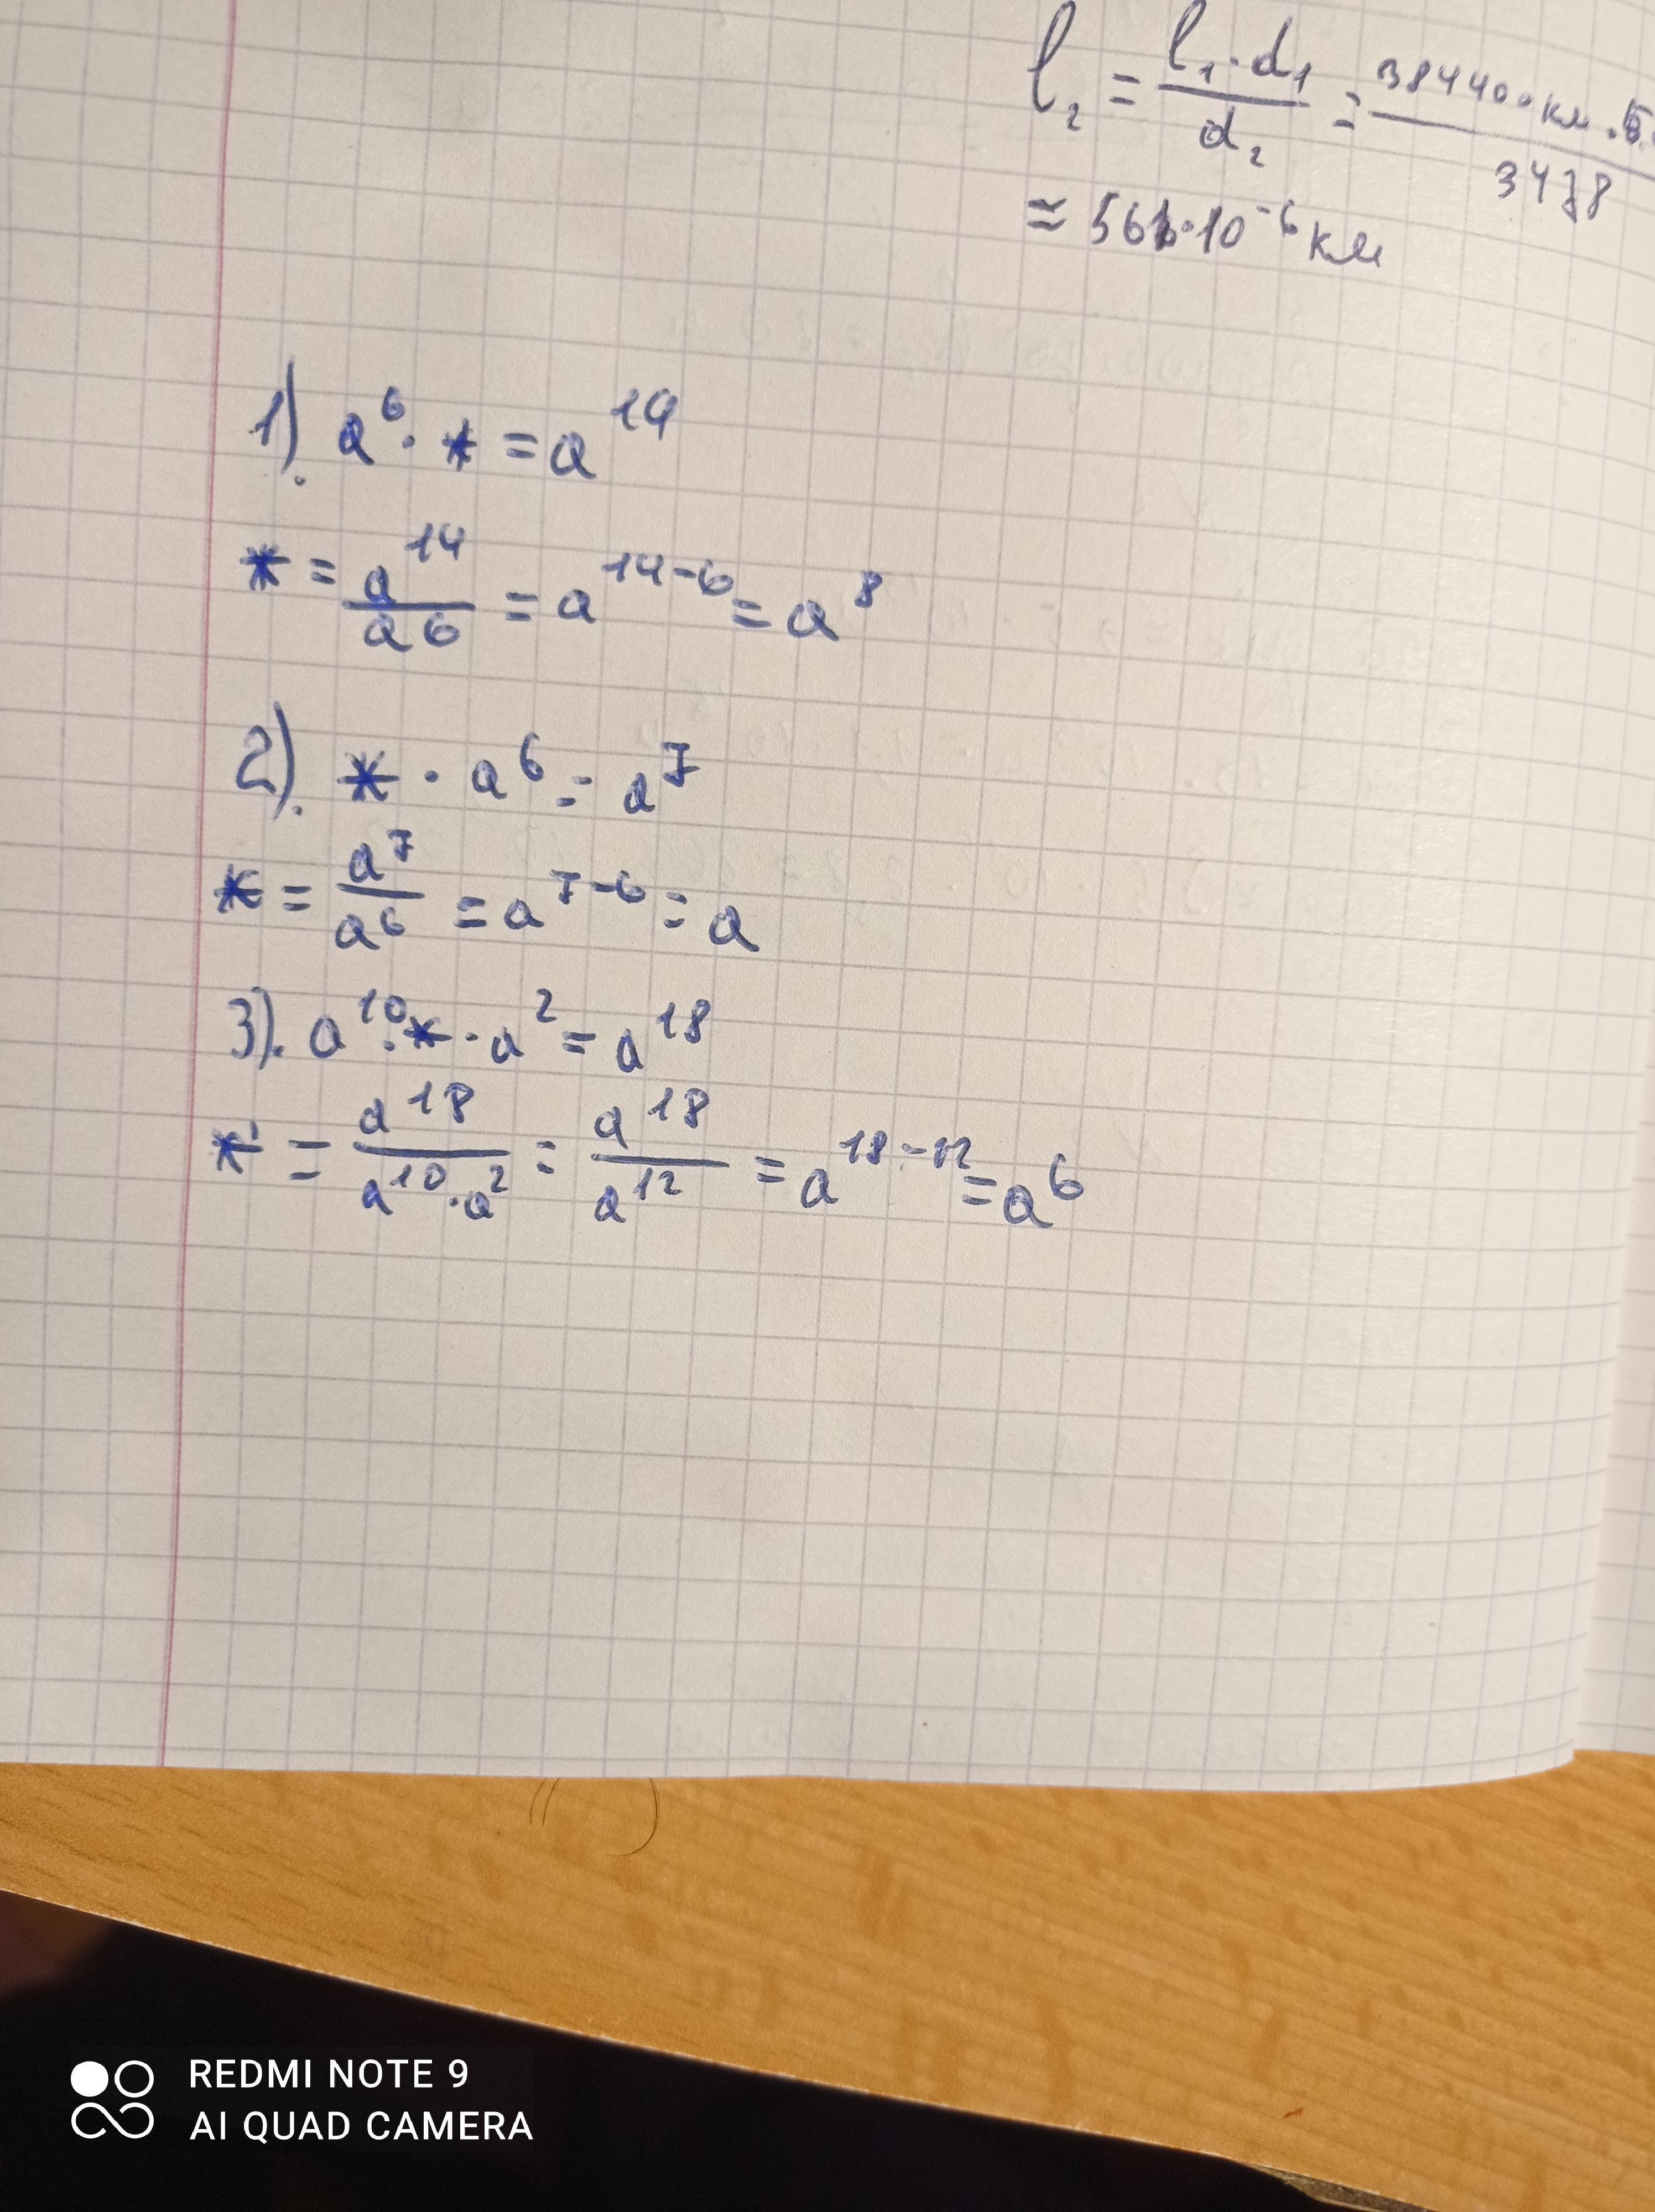 l₂ = l₁·d₁/d₂ = 384400 км·/3478
≈ 561·10⁻⁶ км
1). a⁶ · * = a¹⁴
* = a¹⁴/a⁶ = a¹⁴⁻⁶ = a⁸
2). * · a⁶ = a⁷
* = a⁷/a⁶ = a⁷⁻⁶ = a
3). a¹⁰ · * · a² = a¹⁸
* = a¹⁸/a¹⁰·a² = a¹⁸/a¹² = a¹⁸⁻¹² = a⁶
REDMI NOTE 9
AI QUAD CAMERA